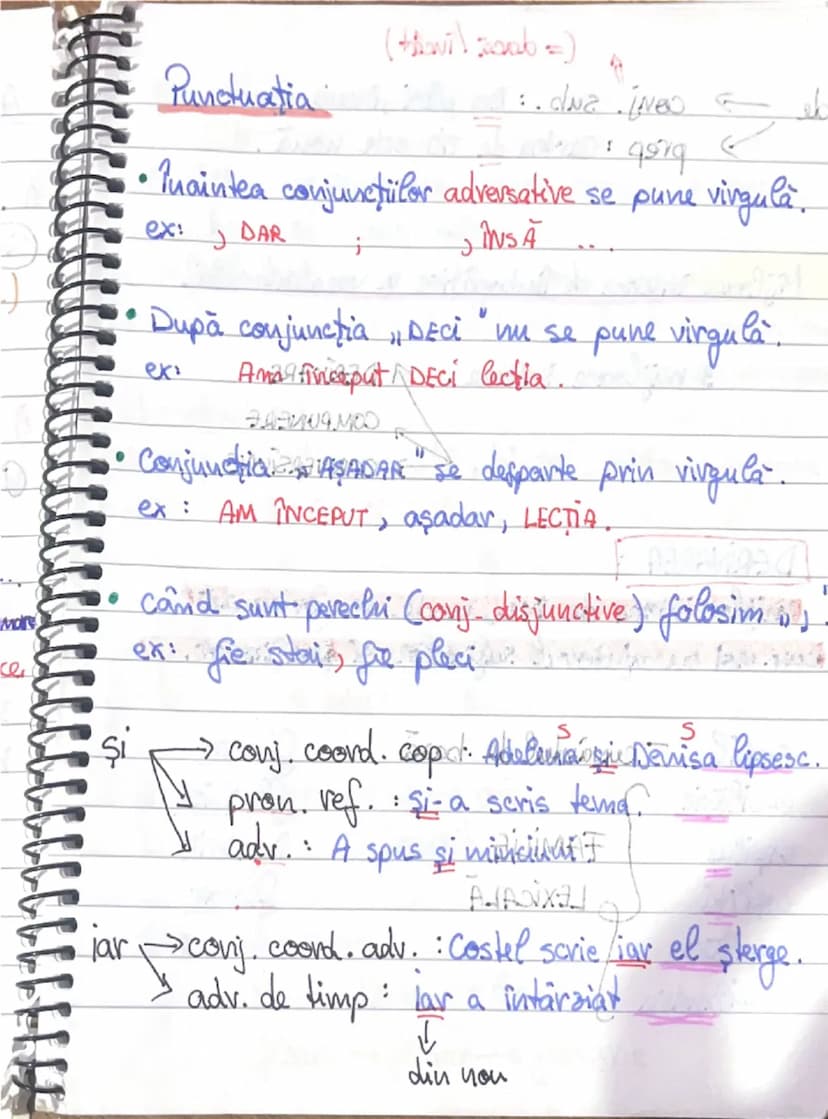 Punctuația
• Înaintea conjuncțiilor adversative se pune virgulă.
ex: , DAR ; , ÎNSĂ ...
• După conjuncția „DECI" nu se pune virgulă.
ex: Am început DECI lecția.
• Conjuncția „AȘADAR" se desparte prin virgulă.
ex: AM ÎNCEPUT, așadar, LECȚIA.
• Când sunt perechi (conj. disjunctive) folosim „,".
ex: fie stai, fie pleci
S S
și → conj. coord. cop.: Adelina și Denisa lipsesc.
pron. ref. : și-a scris tema.
adv. : A spus și minciuni
iar → conj. coord. adv. : Costel scrie iar el șterge.
adv. de timp : iar a întârziat
↓
din nou